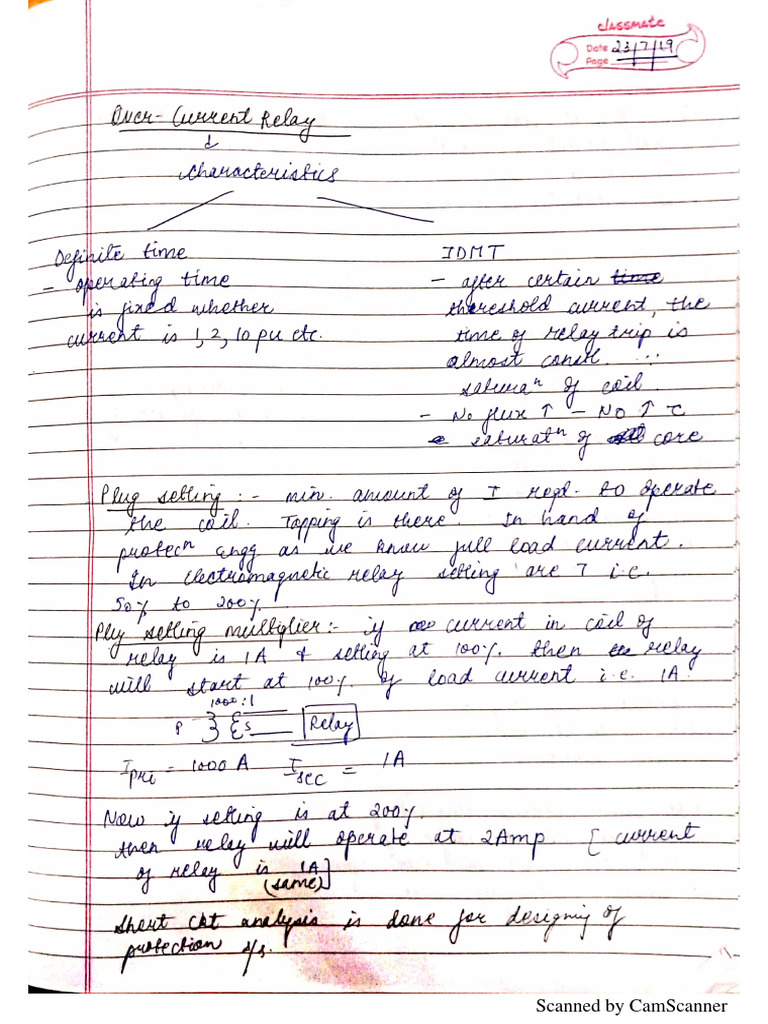 classmate
Date 23/7/19
Page
Over-Current Relay
Characteristics
Definite time
- operating time
is fixed whether
current is 1, 2, 10 pu etc.
IDMT
- after certain time
threshold current, the
time of relay trip is
almost const. ∵
saturaⁿ of coil.
- No flux ↑ - No ↑ τ
saturatⁿ of core
Plug setting :- min. amount of I reqd. to operate
the coil. Tapping is there. In hand of
protecⁿ Engg as we know full load current.
In electromagnetic relay setting are 7 i.e.
50% to 200%
Plug setting multiplier:- if current in coil of
relay is 1A & setting at 100%. then relay
will start at 100% of load current i.e. 1A.
1000:1
P S Relay
Ipri = 1000 A Isec = 1A
Now if setting is at 200%.
then relay will operate at 2Amp [current
of relay is 1A]
(same)
Short ckt analysis is done for designing of
protection s/s.
Scanned by CamScanner